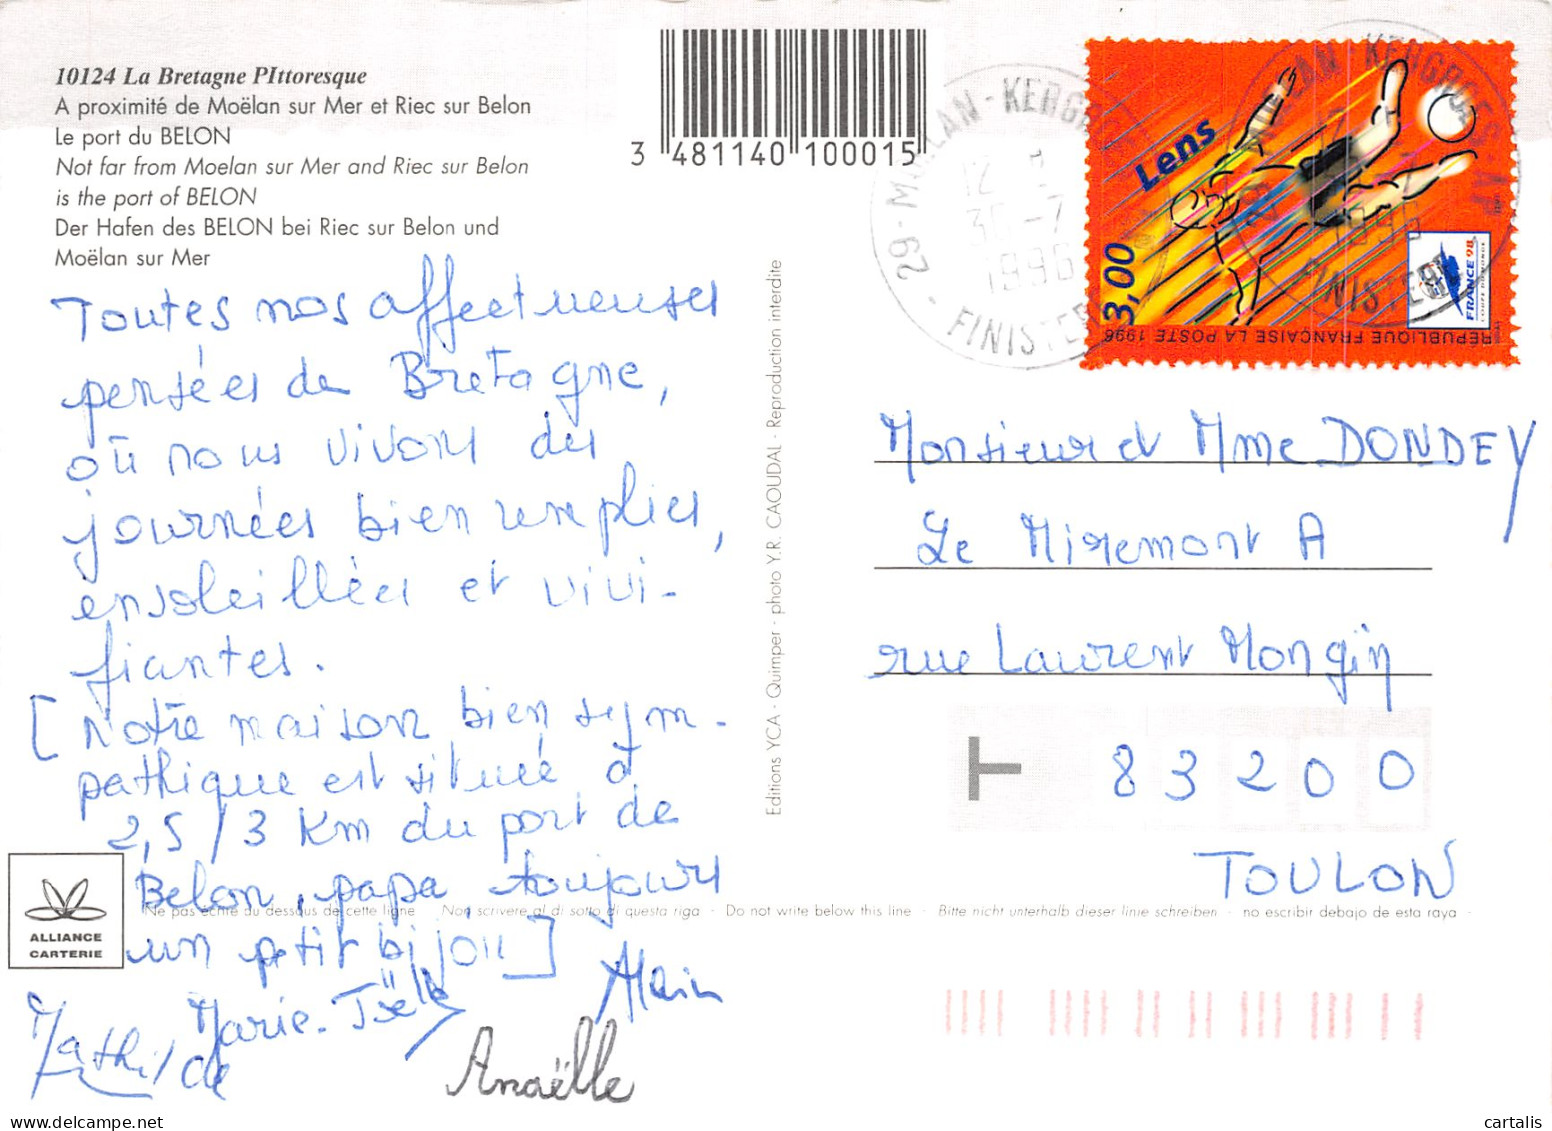 10124 La Bretagne PIttoresque
A proximité de Moëlan sur Mer et Riec sur Belon
Le port du BELON
Not far from Moelan sur Mer and Riec sur Belon
is the port of BELON
Der Hafen des BELON bei Riec sur Belon und
Moëlan sur Mer
3 481140 100015
Toutes nos affectueuses
pensées de Bretagne,
où nous vivons des
journées bien remplies,
ensoleillées et vivi-
fiantes.
[Notre maison bien sym-
pathique est située à
2,5/3 Km du port de
Belon, papa toujours
un petit bijou]
Alain
Marie-Joëlle
Mathilde
Anaëlle
ALLIANCE
CARTERIE
Ne pas écrire au dessous de cette ligne - Non scrivere al di sotto di questa riga - Do not write below this line - Bitte nicht unterhalb dieser linie schreiben - no escribir debajo de esta raya -
Editions YCA - Quimper - photo Y.R. CAOUDAL - Reproduction interdite
29-MOELAN-KERGROES-AP
12
30-7
1996
FINISTERE
Lens
3,00
FRANCE 98
COUPE DU MONDE
RÉPUBLIQUE FRANÇAISE LA POSTE 1996
Monsieur et Mme DONDEY
Le Miremont A
rue Laurent Mongin
83200
TOULON
cartalis
www.delcampe.net